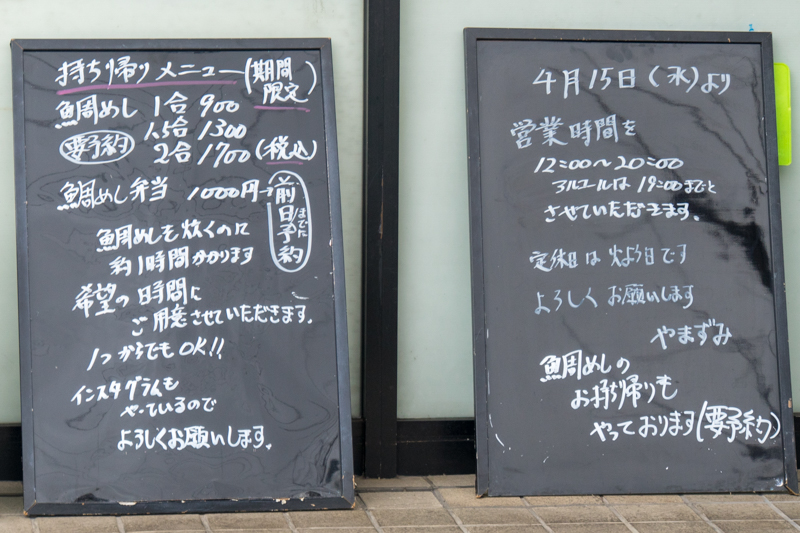 持ち帰りメニュー(期間限定)
鯛めし 1合 900
要予約 1.5合 1300
2合 1700(税込)
鯛めし弁当 1000円→前日までに予約
鯛めしを炊くのに
約1時間かかります
希望の時間に
ご用意させていただきます。
1つからでもOK!!
インスタグラムも
やっているので
よろしくお願いします。
4月15日(水)より
営業時間を
12:00〜20:00
アルコールは19:00までと
させていただきます。
定休日は火よう日です
よろしくお願いします
やまずみ
鯛めしの
お持ち帰りも
やっております(要予約)